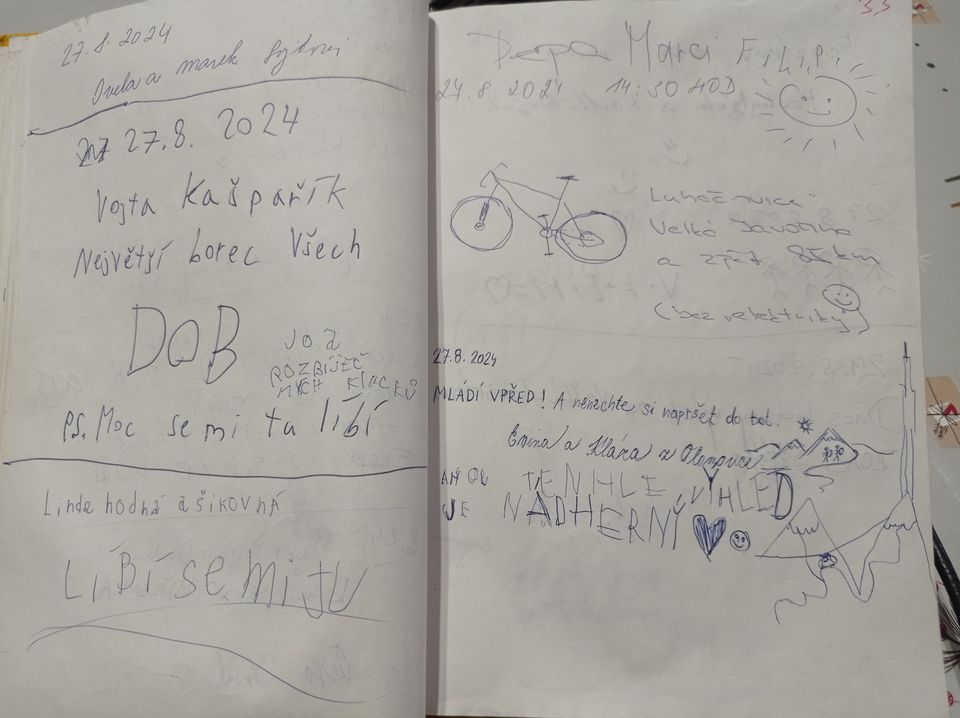 27.8. 2024
a marek
27.8. 2024
Vojta Kašpařík
Největší borec Všech
DOB
JOJ
ROZBÍJEČ
MÝCH KLACKŮ
PS. Moc se mi tu líbí
Linda hodná a šikovná
LÍBÍ SE Mi TU
33
Pepa Marci Filip
27.8. 2024 14:30 HOD
Velká Javořina
a zpět 85km
(bez elektriky)
27.8. 2024
MLÁDÍ VPŘED! A nenechte si napršet do bot.
Emina a Klára z Olomouce
AHOJ TENHLE VÝHLED
JE NÁDHERNÝ